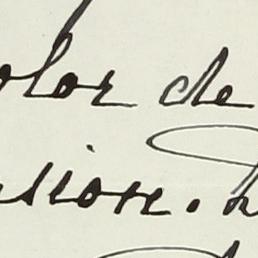 olor de
sion.